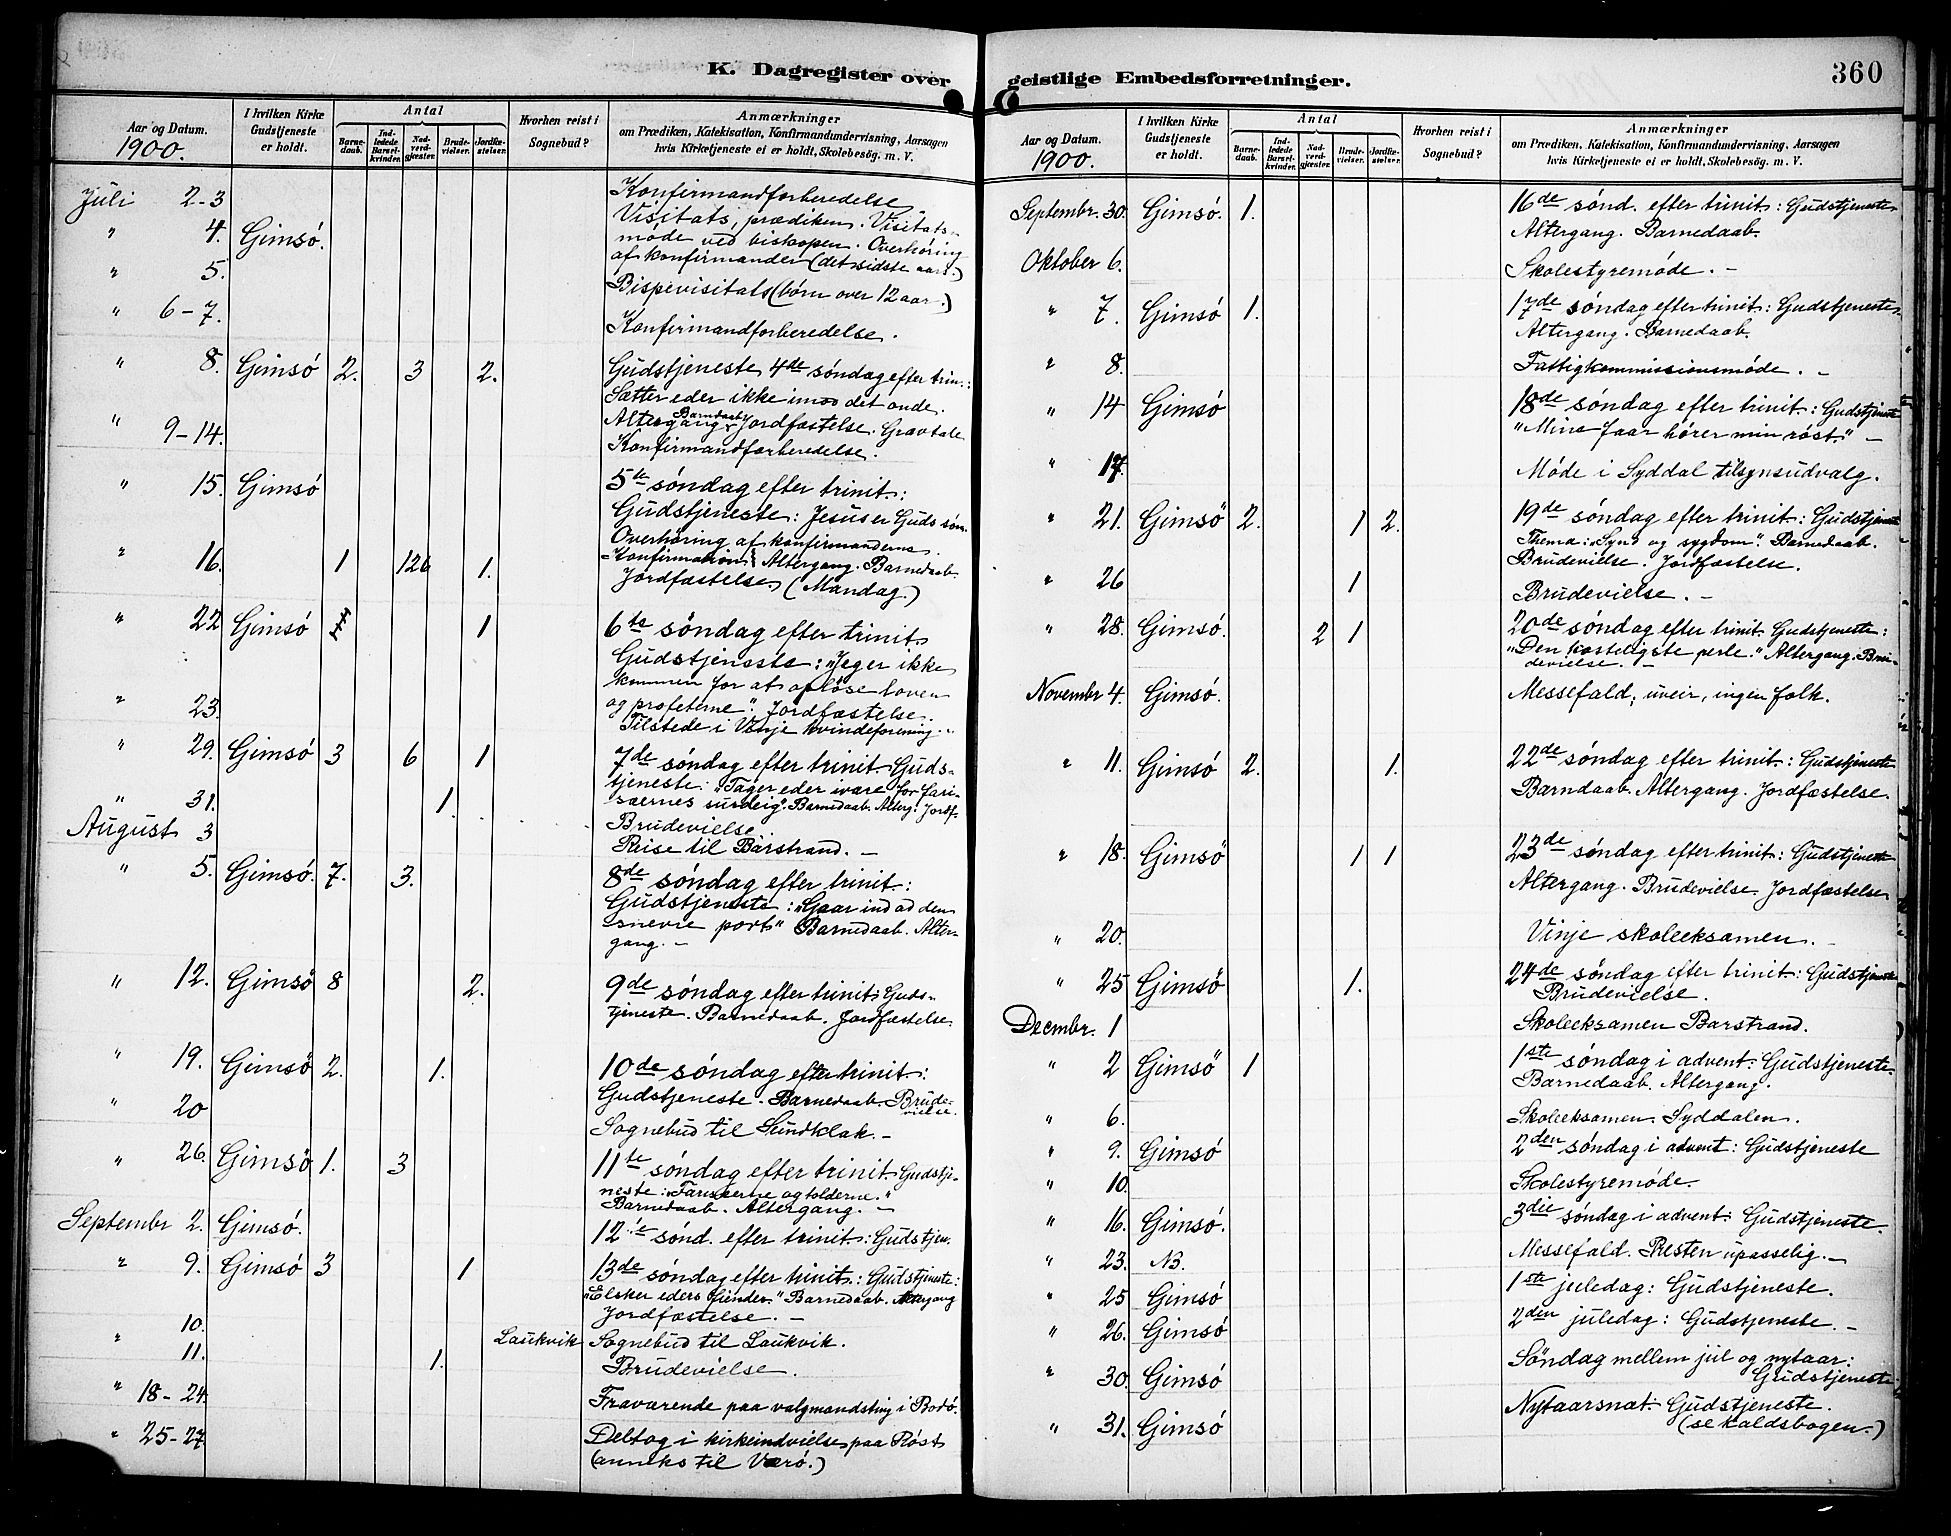 360
K. Dagregister over geistlige Embedsforretninger.
Aar og Datum.
1900.
I hvilken Kirke Gudstjeneste er holdt.
Antal
Barnedaab.
Indledede Barselkvinder.
Nadverdgjester.
Brudevielser.
Jordfæstelser.
Hvorhen reist i Sognebud?
Anmærkninger
om Prædiken, Katekisation, Konfirmandundervisning, Aarsagen
hvis Kirketjeneste ei er holdt, Skolebesøg. m. V.
Juli 2-3 Konfirmandforberedelse
" 4. Gimsø. Visitats, prædiken. Visitats-
møde ved biskopen. Overhøring
af konfirmander (det sidste aars.)
" 5. Bispevisitats (børn over 12 aar.)
" 6-7. Konfirmandforberedelse.
" 8. Gimsø 2. 3 2. Gudstjeneste 4de søndag efter trin.:
Sætter eder ikke imod det onde.
Altergang Barndaab Jordfæstelse. Gravtale
" 9-14. Konfirmandforberedelse.
" 15. Gimsø 5te søndag efter trinit:
Gudstjeneste: Jesus er Guds søn.
Overhøring af konfirmanderne.
" 16. 1 126 1. Konfirmation. Altergang. Barnedaab.
Jordfæstelse. (Mandag.)
" 22 Gimsø 1 6te søndag efter trinit
Gudstjeneste: "Jeg er ikke
kommen for at opløse loven
og profeterne". Jordfæstelse.
" 23. Tilstede i Vinje kvindeforening.
" 29. Gimsø 3 6 1 7de søndag efter trinit. Guds-
tjeneste: "Tager eder ivare for fari-
sæernes surdeig". Barnedaab. Alterg. Jordf.
" 31. 1. Brudevielse.
August 3 Reise til Barstrand. -
" 5. Gimsø. 7. 3. 8de søndag efter trinit:
Gudstjeneste: "Gaar ind ad den
snevre port" Barnedaab. Alter-
gang. -
" 12. Gimsø 8 2. 9de søndag efter trinit: Guds-
tjeneste. Barnedaab. Jordfæstelse.
" 19. Gimsø 2. 1. 10de søndag efter trinit.:
Gudstjeneste. Barnedaab. Brude-
vielse.
" 20 Sognebud til Sundklak. -
" 26. Gimsø 1. 3 11te søndag efter trinit. Gudstje-
neste: "Farisæerne og tolderne."
Barnedaab. Altergang. -
Septembr 2. Gimsø. 12te sønd. efter trinit.: Gudstjen.
" 9. Gimsø 3 1 13de søndag efter trinit.: Gudstjeneste:
"Elsker eders fiender." Barnedaab. Altergang
Jordfæstelse. -
" 10. Laukvik Sognebud til Laukvik.
" 11. 1. Brudevielse.
" 18-24. Fraværende paa valgmandsting i Bodø.
" 25-27 Deltog i kirkeindvielse paa Røst
(anneks til Værø.)
Aar og Datum.
1900.
I hvilken Kirke Gudstjeneste er holdt.
Antal
Barnedaab.
Indledede Barselkvinder.
Nadverdgjester.
Brudevielser.
Jordfæstelser.
Hvorhen reist i Sognebud?
Anmærkninger
om Prædiken, Katekisation, Konfirmandundervisning, Aarsagen
hvis Kirketjeneste ei er holdt, Skolebesøg. m. V.
Septembr. 30. Gimsø. 1. 16de sønd. efter trinit.: Gudstjeneste
Altergang. Barnedaab.
Oktober 6. Skolestyremøde. -
" 7. Gimsø 1. 17de søndag efter trinit: Gudstjeneste.
Altergang. Barnedaab.
" 8. Fattigkommissionsmøde. -
" 14 Gimsø 18de søndag efter trinit: Gudstjeneste
"Mine faar hører min røst." -
" 17. Møde i Syddal tilsynsudvalg.
" 21. Gimsø 2. 1 2. 19de søndag efter trinit: Gudstjeneste
Thema: "Synd og sygdom". Barnedaab.
Brudevielse. Jordfæstelse.
" 26 1 Brudevielse. -
" 28. Gimsø. 2 1 20de søndag efter trinit. Gudstjeneste:
"Den kosteligste perle." Altergang. Bru-
devielse. -
Novembr 4. Gimsø. Messefald; uveir, ingen folk.
" 11. Gimsø 2. 1. 22de søndag efter trinit: Gudstjeneste
Barndaab. Altergang. Jordfæstelse.
" 18. Gimsø 1 1 23de søndag efter trinit: Gudstjeneste
Altergang. Brudevielse. Jordfæstelse
" 20. Vinje skoleeksamen. -
" 25 Gimsø 1. 24de søndag efter trinit: Gudstjeneste
Brudevielse.
Decmbr. 1 Skoleeksamen Barstrand.
" 2 Gimsø 1 1ste søndag i advent: Gudstjeneste.
Barnedaab. Altergang.
" 6. Skoleeksamen. Syddalen.
" 9. Gimsø 2den søndag i advent: Gudstjeneste
" 10. Skolestyremøde.
" 16. Gimsø. 3die søndag i advent: Gudstjeneste.
" 23. NB. Messefald. Presten upasselig. -
" 25 Gimsø 1ste juledag: Gudstjeneste.
" 26. Gimsø 2den juledag: Gudstjeneste. -
" 30. Gimsø Søndag mellem jul og nytaar:
Gudstjeneste.
" 31. Gimsø Nytaarsnat: Gudstjeneste.
(se kaldsbogen.)